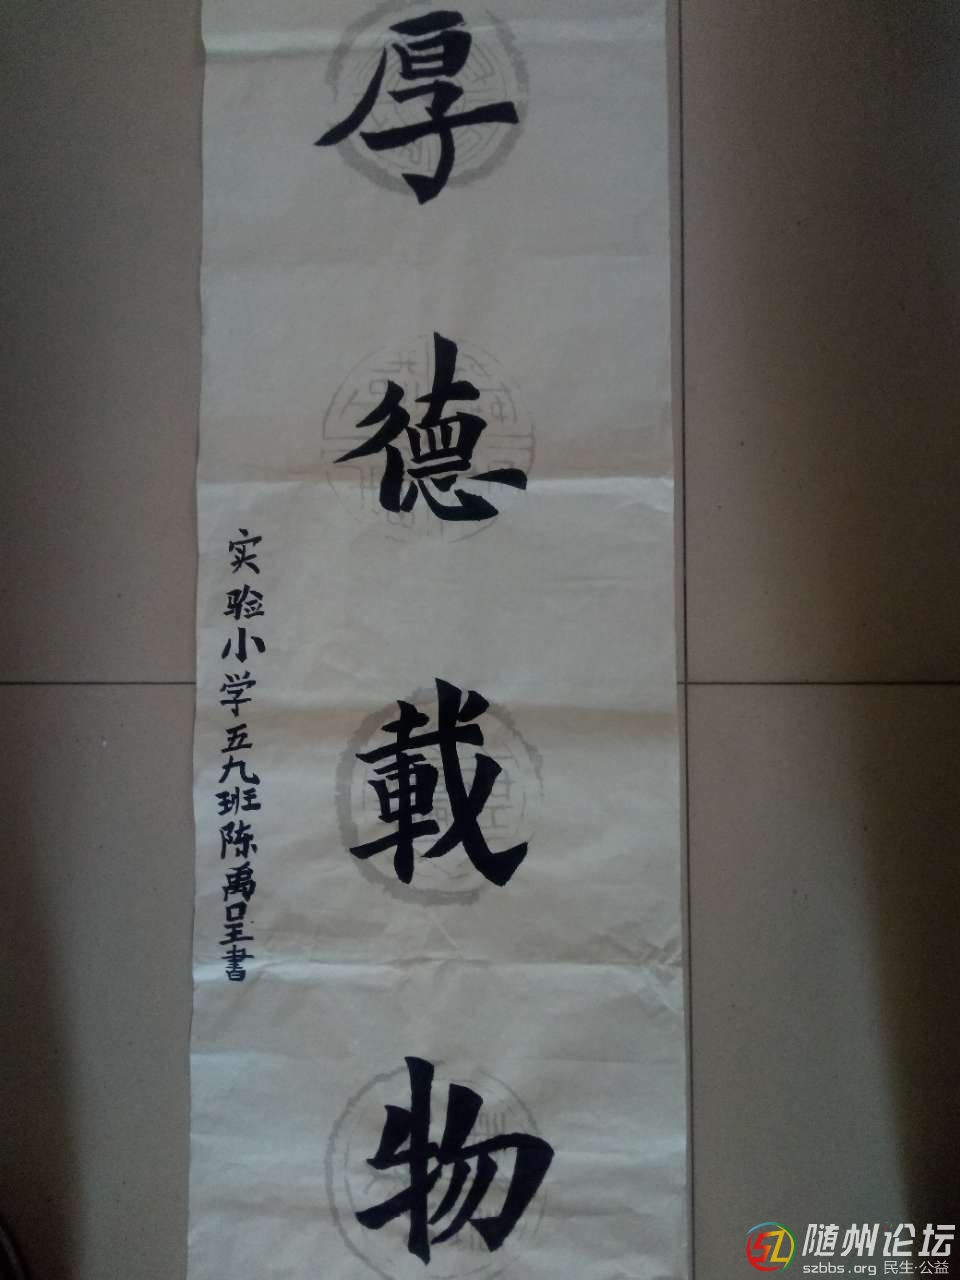 厚德载物
实验小学五九班陈禹呈書
随州论坛
szbbs.org 民生·公益